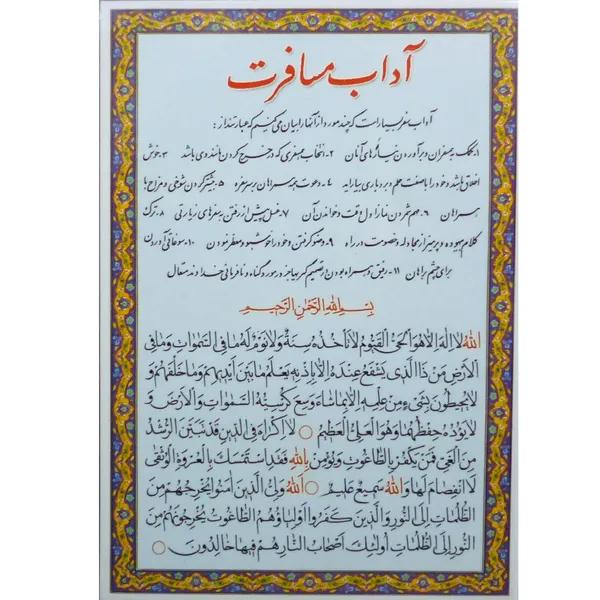 آداب مسافرت
آداب سفر بسیار است که چند مورد از آنها را بیان می کنیم که عبارتند از:
۱. کمک به همسفران و برآوردن نیازهای آنان ۲- انتخاب همسفری که در خرج کردن مانند وی باشد ۳- خوش
اخلاق باشد و خود را با صفت حلم و بردباری بیاراید ۴- دعوت همه همراهان بر سر سفره ۵- بیشتر کردن شوخی و مزاح با
همراهان ۶- مهم شمردن نماز اول وقت و خواندن آن ۷- غسل پیش از رفتن به سفرهای زیارتی ۸- ترک
کلام بیهوده و پرهیز از مجادله و خصومت در راه ۹- وضو گرفتن و خود را خوشبو و معطر نمودن ۱۰- سوغاتی آوردن
برای چشم براهان ۱۱- رفیق و همراه بودن در تصمیم گیریها بجز در مورد گناه و نافرمانی خداوند متعال
بِسْمِ اللهِ الرَّحْمٰنِ الرَّحیمِ
اَللهُ لا اِلٰهَ اِلّا هُوَ الْحَیُّ الْقَیُّومُ لا تَأْخُذُهُ سِنَةٌ وَلا نَوْمٌ لَهُ ما فِی السَّمٰواتِ وَما فِی
الْاَرْضِ مَنْ ذَا الَّذی یَشْفَعُ عِنْدَهُ اِلّا بِاِذْنِهِ یَعْلَمُ ما بَیْنَ اَیْدیهِمْ وَما خَلْفَهُمْ وَ
لا یُحیطُونَ بِشَیْءٍ مِنْ عِلْمِهِ اِلّا بِما شاءَ وَسِعَ کُرْسِیُّهُ السَّمٰواتِ وَالْاَرْضَ وَ
لا یَؤُدُهُ حِفْظُهُما وَهُوَ الْعَلِیُّ الْعَظیمُ لا اِکْراهَ فِی الدّینِ قَدْ تَبَیَّنَ الرُّشْدُ
مِنَ الْغَیِّ فَمَنْ یَکْفُرْ بِالطّاغُوتِ وَیُؤْمِنْ بِاللهِ فَقَدِ اسْتَمْسَکَ بِالْعُرْوَةِ الْوُثْقی
لَا انْفِصامَ لَها وَاللهُ سَمیعٌ عَلیمٌ اَللهُ وَلِیُّ الَّذینَ اٰمَنُوا یُخْرِجُهُمْ مِنَ
الظُّلُماتِ اِلَی النُّورِ وَالَّذینَ کَفَرُوا اَوْلِیاؤُهُمُ الطّاغُوتُ یُخْرِجُونَهُمْ مِنَ
النُّورِ اِلَی الظُّلُماتِ اُولٰئِکَ اَصْحابُ النّارِ هُمْ فیها خالِدُونَ